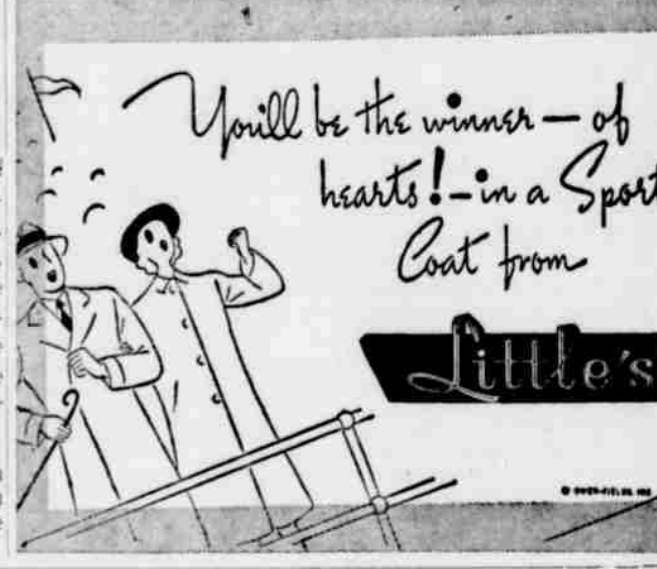 You'll be the winner — of
hearts! — in a Sport
Coat from
Little's